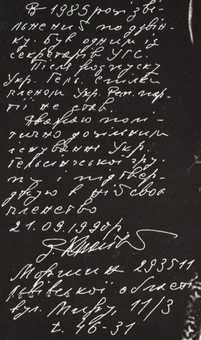 В 1985 році зві-
льнений по дзвін-
ку. Був одним із
секретарів УГС.
Після розпуску
Укр. Гель. спілки
членом Укр. Респ. пар-
тії не став.
Вважаю полі-
тично доцільним
існування Укр.
Гельсінської гру-
пи і підтвер-
джую в ній своє
членство
21.09.1990р
Моршин 293511
Львівської області
вул. Миру, 11/3
т. 46-31